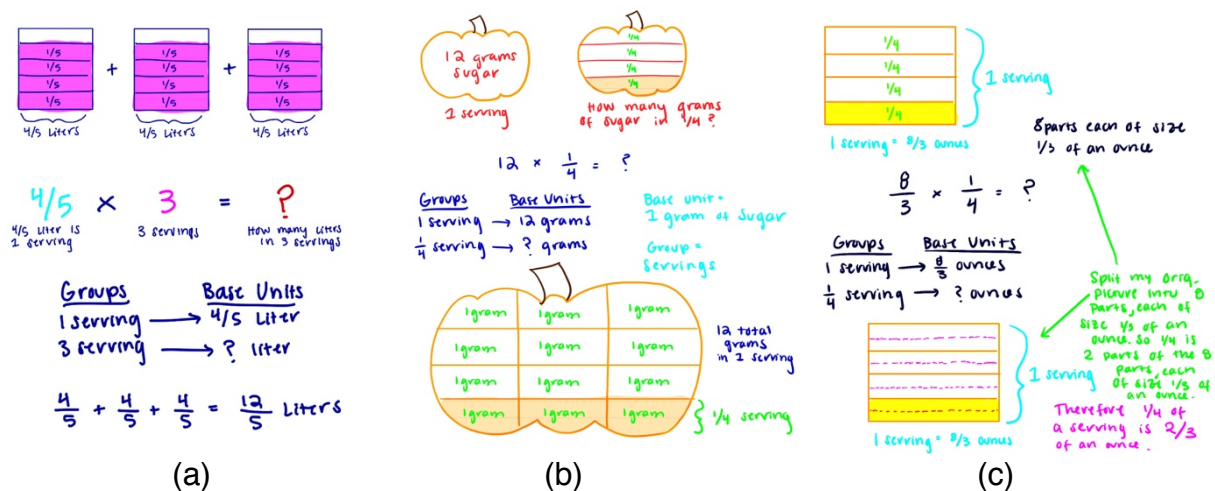 1/5 1/5 1/5
1/5 + 1/5 + 1/5
1/5 1/5 1/5
1/5 1/5 1/5
4/5 Liters 4/5 Liters 4/5 Liters
4/5 × 3 = ?
4/5 liter is
1 serving
3 servings
How many liters
in 3 servings
Groups Base Units
1 serving → 4/5 Liter
3 serving → ? liter
4/5 + 4/5 + 4/5 = 12/5 Liters
(a)
12 grams
sugar
1 serving
1/4
1/4
1/4
1/4
How many grams
of sugar in 1/4?
12 × 1/4 = ?
Groups Base Units
1 serving → 12 grams
1/4 serving → ? grams
Base unit =
1 gram of sugar
Group =
servings
1gram 1gram 1gram
1gram 1gram 1gram
1gram 1gram 1gram
1gram 1gram 1gram
12 total
grams
in 1 serving
1/4 serving
(b)
1/4
1/4
1/4
1/4
1 serving
1 serving = 8/3 ounces
8 parts each of size
1/3 of an ounce
8/3 × 1/4 = ?
Groups Base Units
1 serving → 8/3 ounces
1/4 serving → ? ounces
1 serving
1 serving = 8/3 ounces
Split my orig.
picture into 8
parts, each of
size 1/3 of an
ounce. So 1/4 is
2 parts of the 8
parts, each
of size 1/3 of
an ounce.
Therefore 1/4 of
a serving is 2/3
of an ounce.
(c)